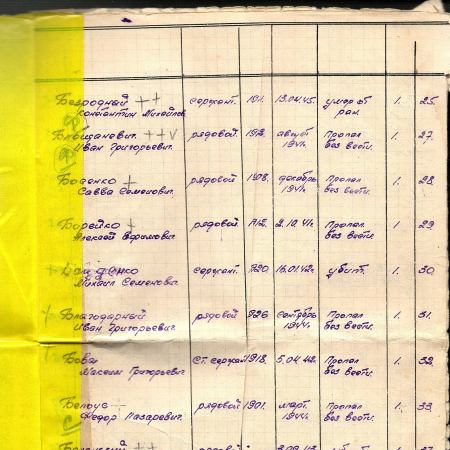 Безродный ++ сержант. 191. 13.04.45. умер от 1. 25.
Константин Михайлов. ран.
++ v рядовой. 1912. август Пропал 1. 27.
Иван Григорьевич. 1941г. без вести.
Боденко + рядовой 1908. декабрь Пропал 1. 28
Савва Семенович. 1941г. без вести.
Борейко + рядовой. 1912. 2.10.41г. Пропал 1. 29
Алексей Ефимович. без вести.
сержант. 1920. 16.01.42г. убит. 1. 30
Михаил Семенович.
Благодарный рядовой 1926 сентябрь Пропал 1. 31.
Иван Григорьевич. 1944г. без вести.
Бова Ст. сержант 1918. 5.04.42г. Пропал 1. 32.
Максим Григорьевич. без вести.
Белоус рядовой 1901. март. Пропал 1. 33.
Федор Лазаревич. 1944г. без вести.